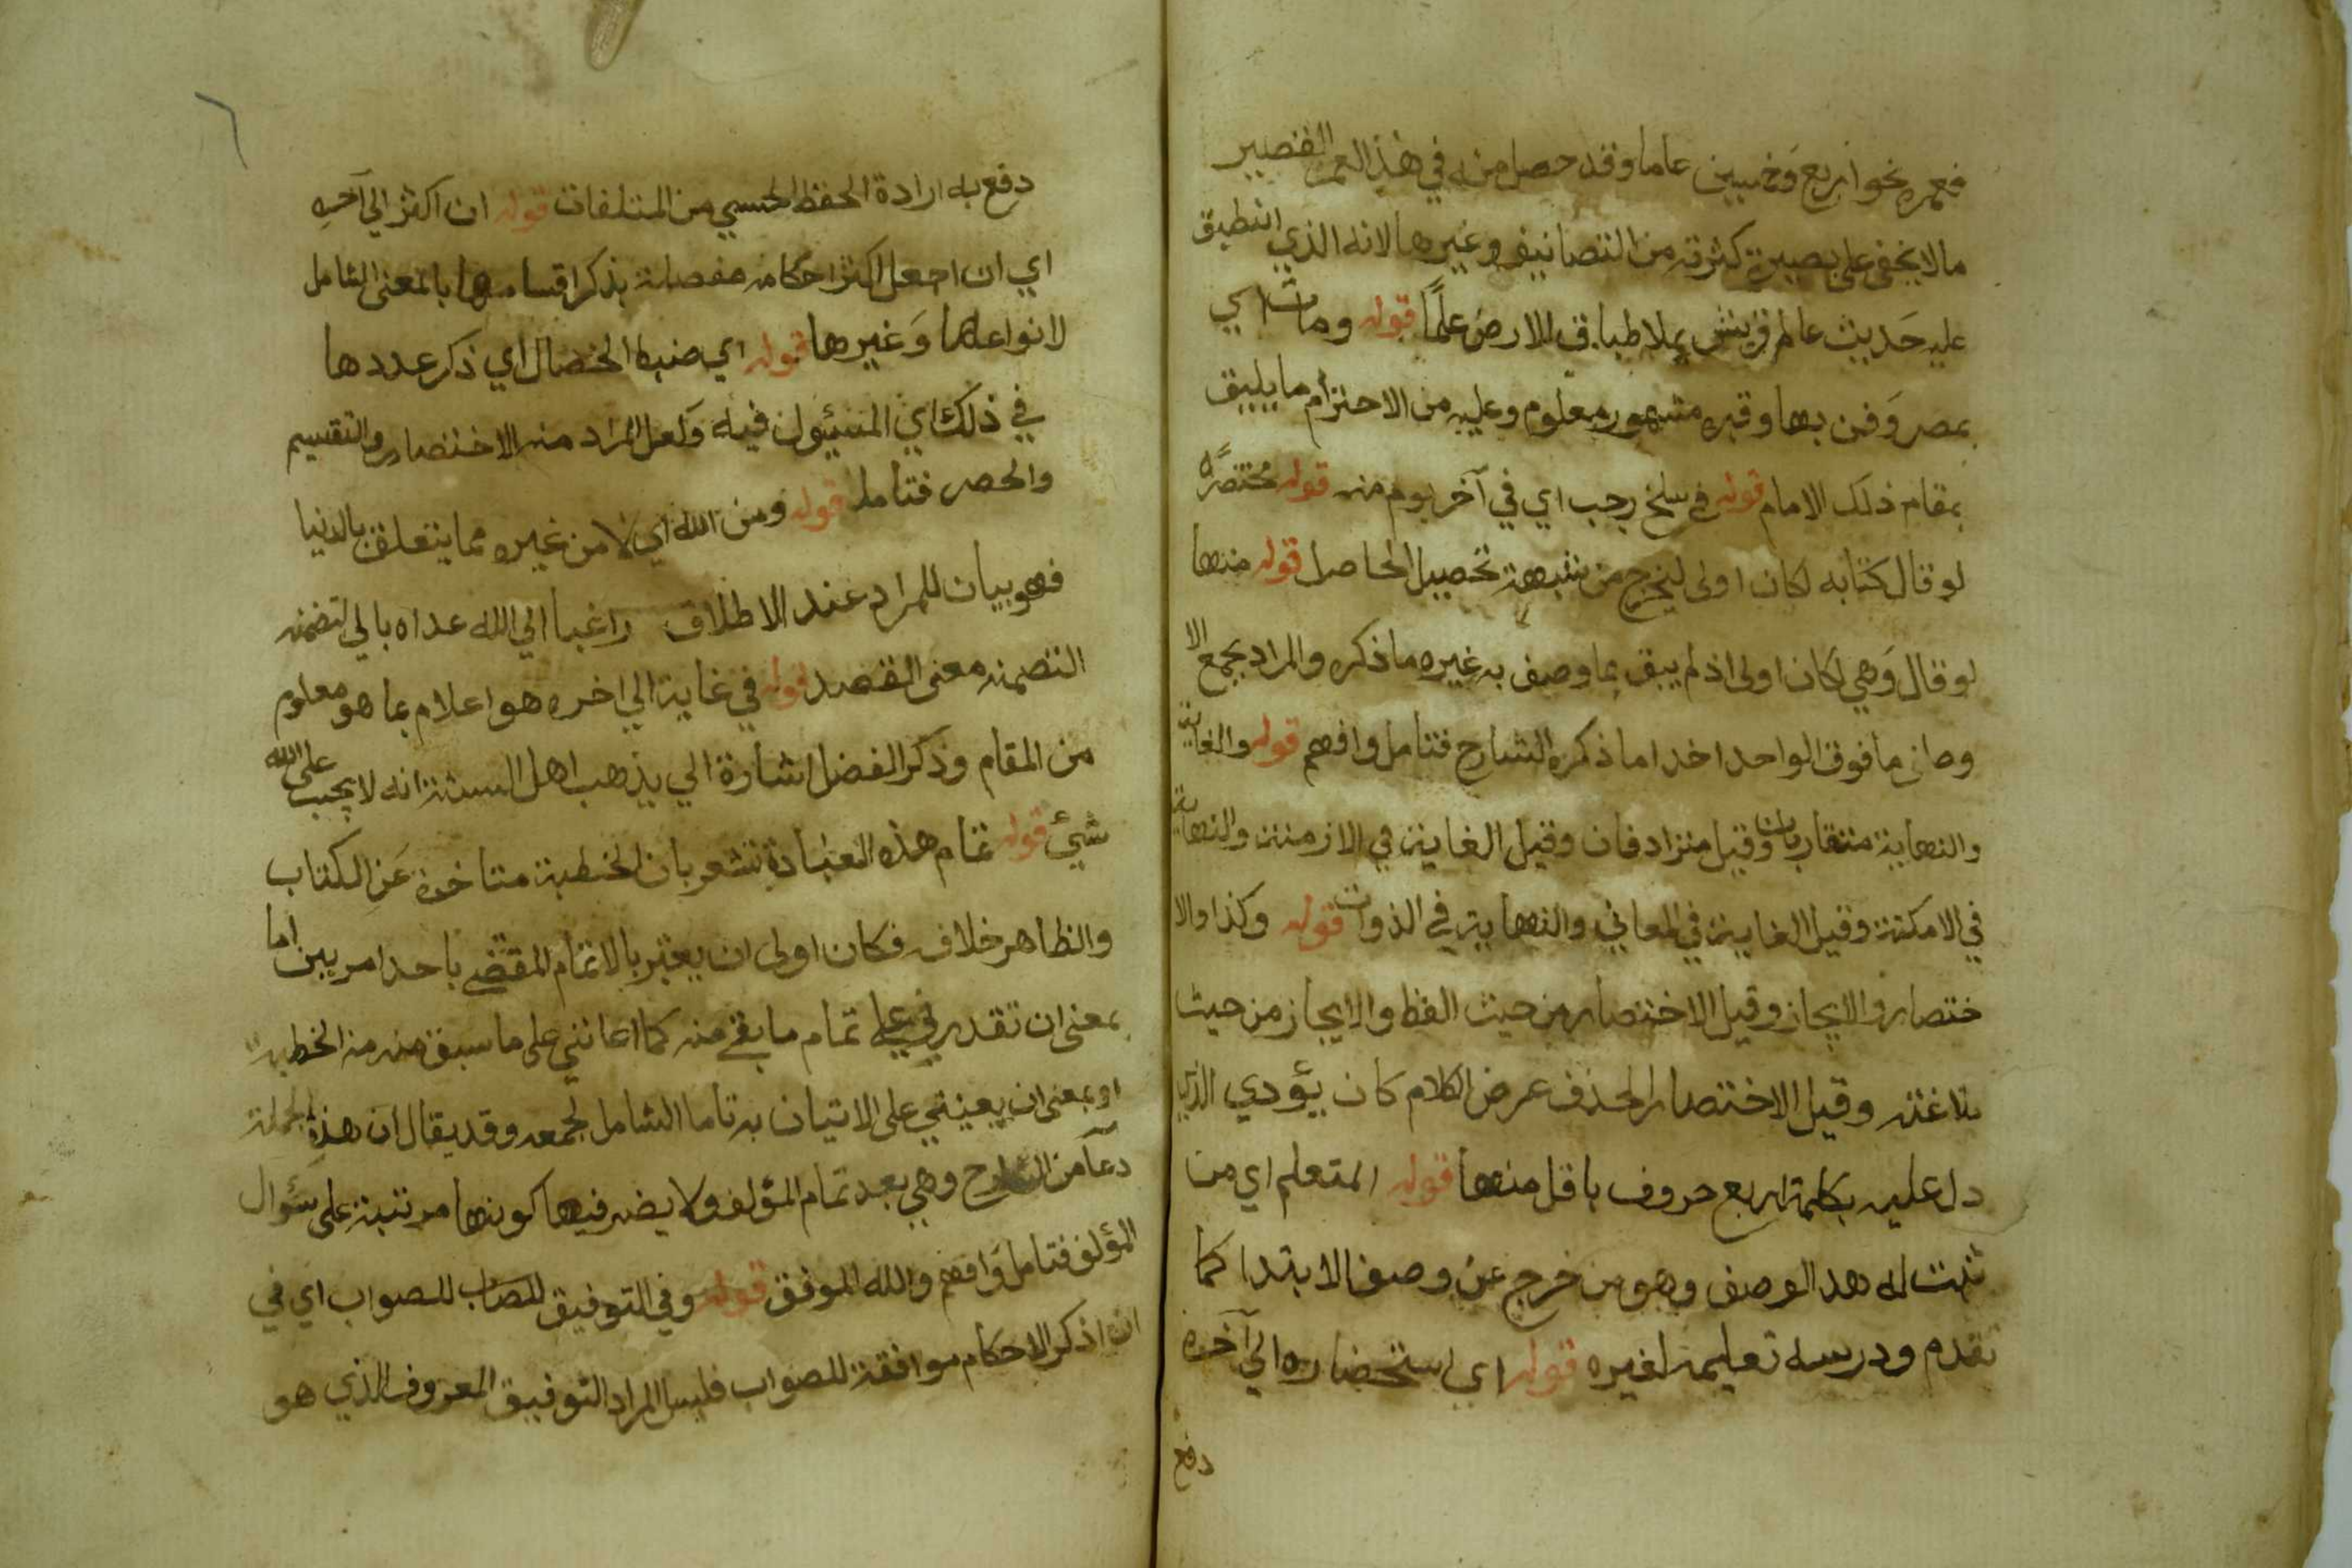 فعمره نحو اربع وخمسين عاما وقد حصل منه في هذا العمر القصير
مالا يخفى على بصيرة كثرته من التصانيف وغيرها لانه الذي انطبق
عليه حديث عالم قريش يملا طباق الارض علمًا قوله ومات اي
بمصر وفن بها وقبره مشهور معلوم وعليه من الاحترام ما يليق
بمقام ذلك الامام قوله في سلخ رجب اي في آخر يوم منه قوله مختصرًا
لو قال كتابه لكان اولى ليخرج من شبهة تحصيل الحاصل قوله منها
لو قال وهي لكان اولى اذ لم يبق بما وصف به غيره ما ذكره والمراد بجمع الا
وصاف ما فوق الواحد اخدا ما ذكره الشارح فتامل وافهم قوله والغاية
والنهاية متقاربان وقيل متراد فان وقيل الغاية في الازمنة والنهاية
في الامكنة وقيل الغاية في المعاني والنهاية في الذوات قوله وكذا والا
ختصار والايجاز وقيل الاختصار من حيث الفظ والايجاز من حيث
بلاغته وقيل الاختصار الحذف عرض الكلام كان يؤدي الذي
دل عليه بكلمة اربع حروف باقل منها قوله المتعلم اي من
ثبت له هد الوصف وهو من خرج عن وصف الابتدا كما
تقدم ودرسه تعليمه لغيره قوله اي استحضاره الي آخره
دفع
٦
دفع به ارادة الحفظ الحسي من المتلفات قوله ان اكثر الي آخره
اي ان اجعل اكثر احكامه مفصلة بذكر اقسامها بالمعنى الشامل
لانواعها وغيرها قوله اي ضبط الخصال اي ذكر عددها
في ذلك اي المسئول فيه ولعل المراد منه الاختصار والتقسيم
والحصر فتامل قوله ومن الله اي لا من غيره مما يتعلق بالدنيا
فهو بيان للمراد عند الاطلاق راغبا الي الله عداه بالي لتضمنه
التضمنه معنى القصد قوله في غاية الي اخره هو اعلام بما هو معلوم
من المقام وذكر الفضل اشارة الي يذهب اهل السنة انه لا يجب على الله
شيئ قوله تمام هذه العبادة تشعر بان الخطبة متاخرة عن الكتاب
والظاهر خلافه فكان اولى ان يعبر بالاتمام المقتضي باحد امرين اما
بمعنى ان تقدرني على تمام ما بقي منه كما اعانني على ما سبق منه من الخطبة
او بمعنى ان يعينني على الاتيان به تاما الشامل لجمعه وقد يقال ان هذه الجملة
دعا من الشارح وهي بعد تمام المؤلف ولا يضر فيها كونها مرتبة على سؤال
المؤلف فتامل وافهم والله الموفق قوله وفي التوفيق للصواب اي في
ان اذكر الاحكام موافقة للصواب فليس المراد التوفيق المعروف الذي هو